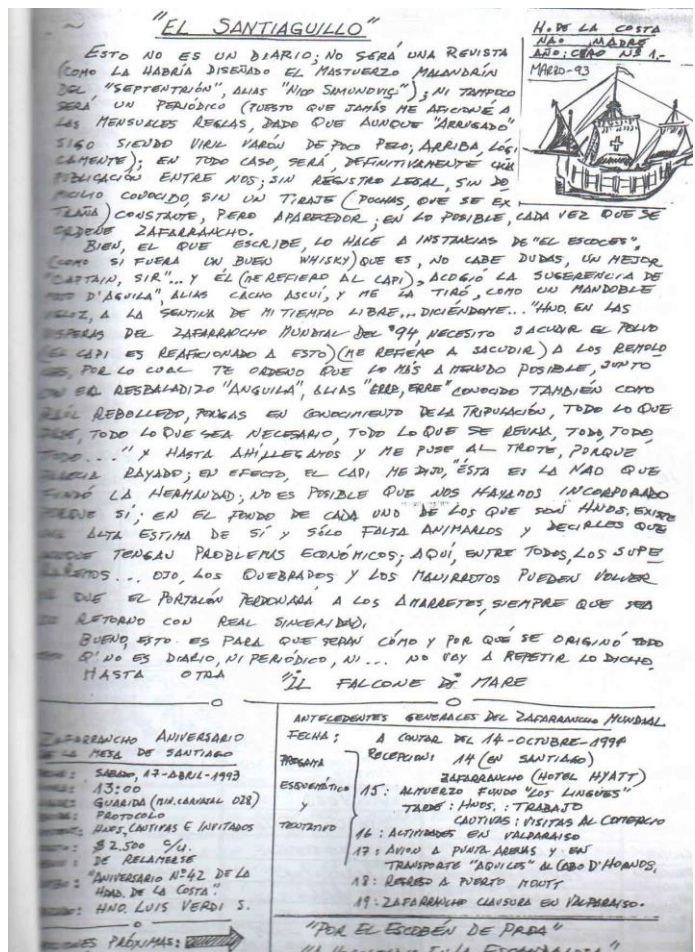 "EL SANTIAGUILLO"
H. DE LA COSTA
NAO MADRE
AÑO: CERO Nº 1.-
MARZO-93
ESTO NO ES UN DIARIO; NO SERÁ UNA REVISTA
(COMO LA HABRÍA DISEÑADO EL MASTUERZO MALANDRÍN
DEL "SEPTENTRIÓN", ALIAS "NICO SIMUNOVIC"); NI TAMPOCO
SERÁ UN PERIÓDICO (PUESTO QUE JAMÁS ME AFICIONÉ A
LAS MENSUALES REGLAS, DADO QUE AUNQUE "ARRUGADO"
SIGO SIENDO VIRIL VARÓN DE POCO PELO; ARRIBA, LÓGI
CAMENTE); EN TODO CASO, SERÁ, DEFINITIVAMENTE UNA
PUBLICACIÓN ENTRE NOS; SIN REGISTRO LEGAL, SIN DO
MICILIO CONOCIDO, SIN UN TIRAJE (PUCHAS, QUE SE EX
TRAÑA) CONSTANTE, PERO APARECEDOR; EN LO POSIBLE, CADA VEZ QUE SE
ORDENE ZAFARRANCHO.
BIEN, EL QUE ESCRIBE, LO HACE A INSTANCIAS DE "EL ESCOCES",
(COMO SI FUERA UN BUEN WHISKY) QUE ES, NO CABE DUDAS, UN MEJOR
"CAPTAIN, SIR"... Y ÉL (ME REFIERO AL CAPI), ACOGIÓ LA SUGERENCIA DE
D'AGUILA", ALIAS CACHO ASCUÍ, Y ME LA TIRÓ, COMO UN MANDOBLE
VELOZ, A LA SENTINA DE MI TIEMPO LIBRE... DICIÉNDOME..."HNO. EN LAS
VISPERAS DEL ZAFARRANCHO MUNDIAL DEL '94, NECESITO SACUDIR EL POLVO
(EL CAPI ES REAFICIONADO A ESTO) (ME REFIERO A SACUDIR) A LOS REMOLO
NES, POR LO CUAL TE ORDENO QUE LO MÁS A MENUDO POSIBLE, JUNTO
CON EL RESBALADIZO "ANGUILA", ALIAS "ERRE, ERRE" CONOCIDO TAMBIÉN COMO
RAÚL REBOLLEDO, PONGAS EN CONOCIMIENTO DE LA TRIPULACIÓN, TODO LO QUE
PASE, TODO LO QUE SEA NECESARIO, TODO LO QUE SE REUNA, TODO, TODO,
TODO...." Y HASTA AHÍ LLEGAMOS Y ME PUSE AL TROTE, PORQUE
PARECIA RAYADO; EN EFECTO, EL CAPI ME DIJO, "ÉSTA ES LA NAO QUE
FUNDÓ LA HERMANDAD; NO ES POSIBLE QUE NOS HAYAMOS INCORPORADO
PORQUE SÍ; EN EL FONDO DE CADA UNO DE LOS QUE SON HNOS. EXISTE
ALTA ESTIMA DE SÍ Y SÓLO FALTA ANIMARLOS Y DECIRLES QUE
AUNQUE TENGAN PROBLEMAS ECONÓMICOS; AQUÍ, ENTRE TODOS, LOS SUPE
RAREMOS... OJO, LOS QUEBRADOS Y LOS MANIRROTOS PUEDEN VOLVER
QUE EL PORTALÓN PERDONARÁ A LOS AMARRETES, SIEMPRE QUE SEA
RETORNO CON REAL SINCERIDAD.
BUENO, ESTO ES PARA QUE SEPAN CÓMO Y POR QUÉ SE ORIGINÓ TODO
Q' NO ES DIARIO, NI PERIÓDICO, NI... NO VOY A REPETIR LO DICHO.
HASTA OTRA
"IL FALCONE DI MARE
ZAFARRANCHO ANIVERSARIO
DE LA MESA DE SANTIAGO
SABADO, 17-ABRIL-1993
13:00
GUARIDA (MIN. CARVAJAL 028)
PROTOCOLO
HNOS, CAUTIVAS E INVITADOS
$2.500 C/U.
DE RELAMERSE
"ANIVERSARIO Nº 42 DE LA
HDAD. DE LA COSTA".
HNO. LUIS VERDI S.
PRÓXIMAS:
ANTECEDENTES GENERALES DEL ZAFARRANCHO MUNDIAL
FECHA: A CONTAR DEL 14-OCTUBRE-1994
PROGRAMA
ESQUEMÁTICO
Y
TENTATIVO
RECEPCION: 14 (EN SANTIAGO)
ZAFARRANCHO (HOTEL HYATT)
15: ALMUERZO FUNDO "LOS LINGUES"
TARDE: HNOS.: TRABAJO
CAUTIVAS: VISITAS AL COMERCIO
16: ACTIVIDADES EN VALPARAISO
17: AVION A PUNTA ARENAS Y EN
TRANSPORTE "AQUILES" AL CABO D'HORNOS.
18: REGRESO A PUERTO MONTT
19: ZAFARRANCHO CLAUSURA EN VALPARAISO.
"POR EL ESCOBÉN DE PROA"